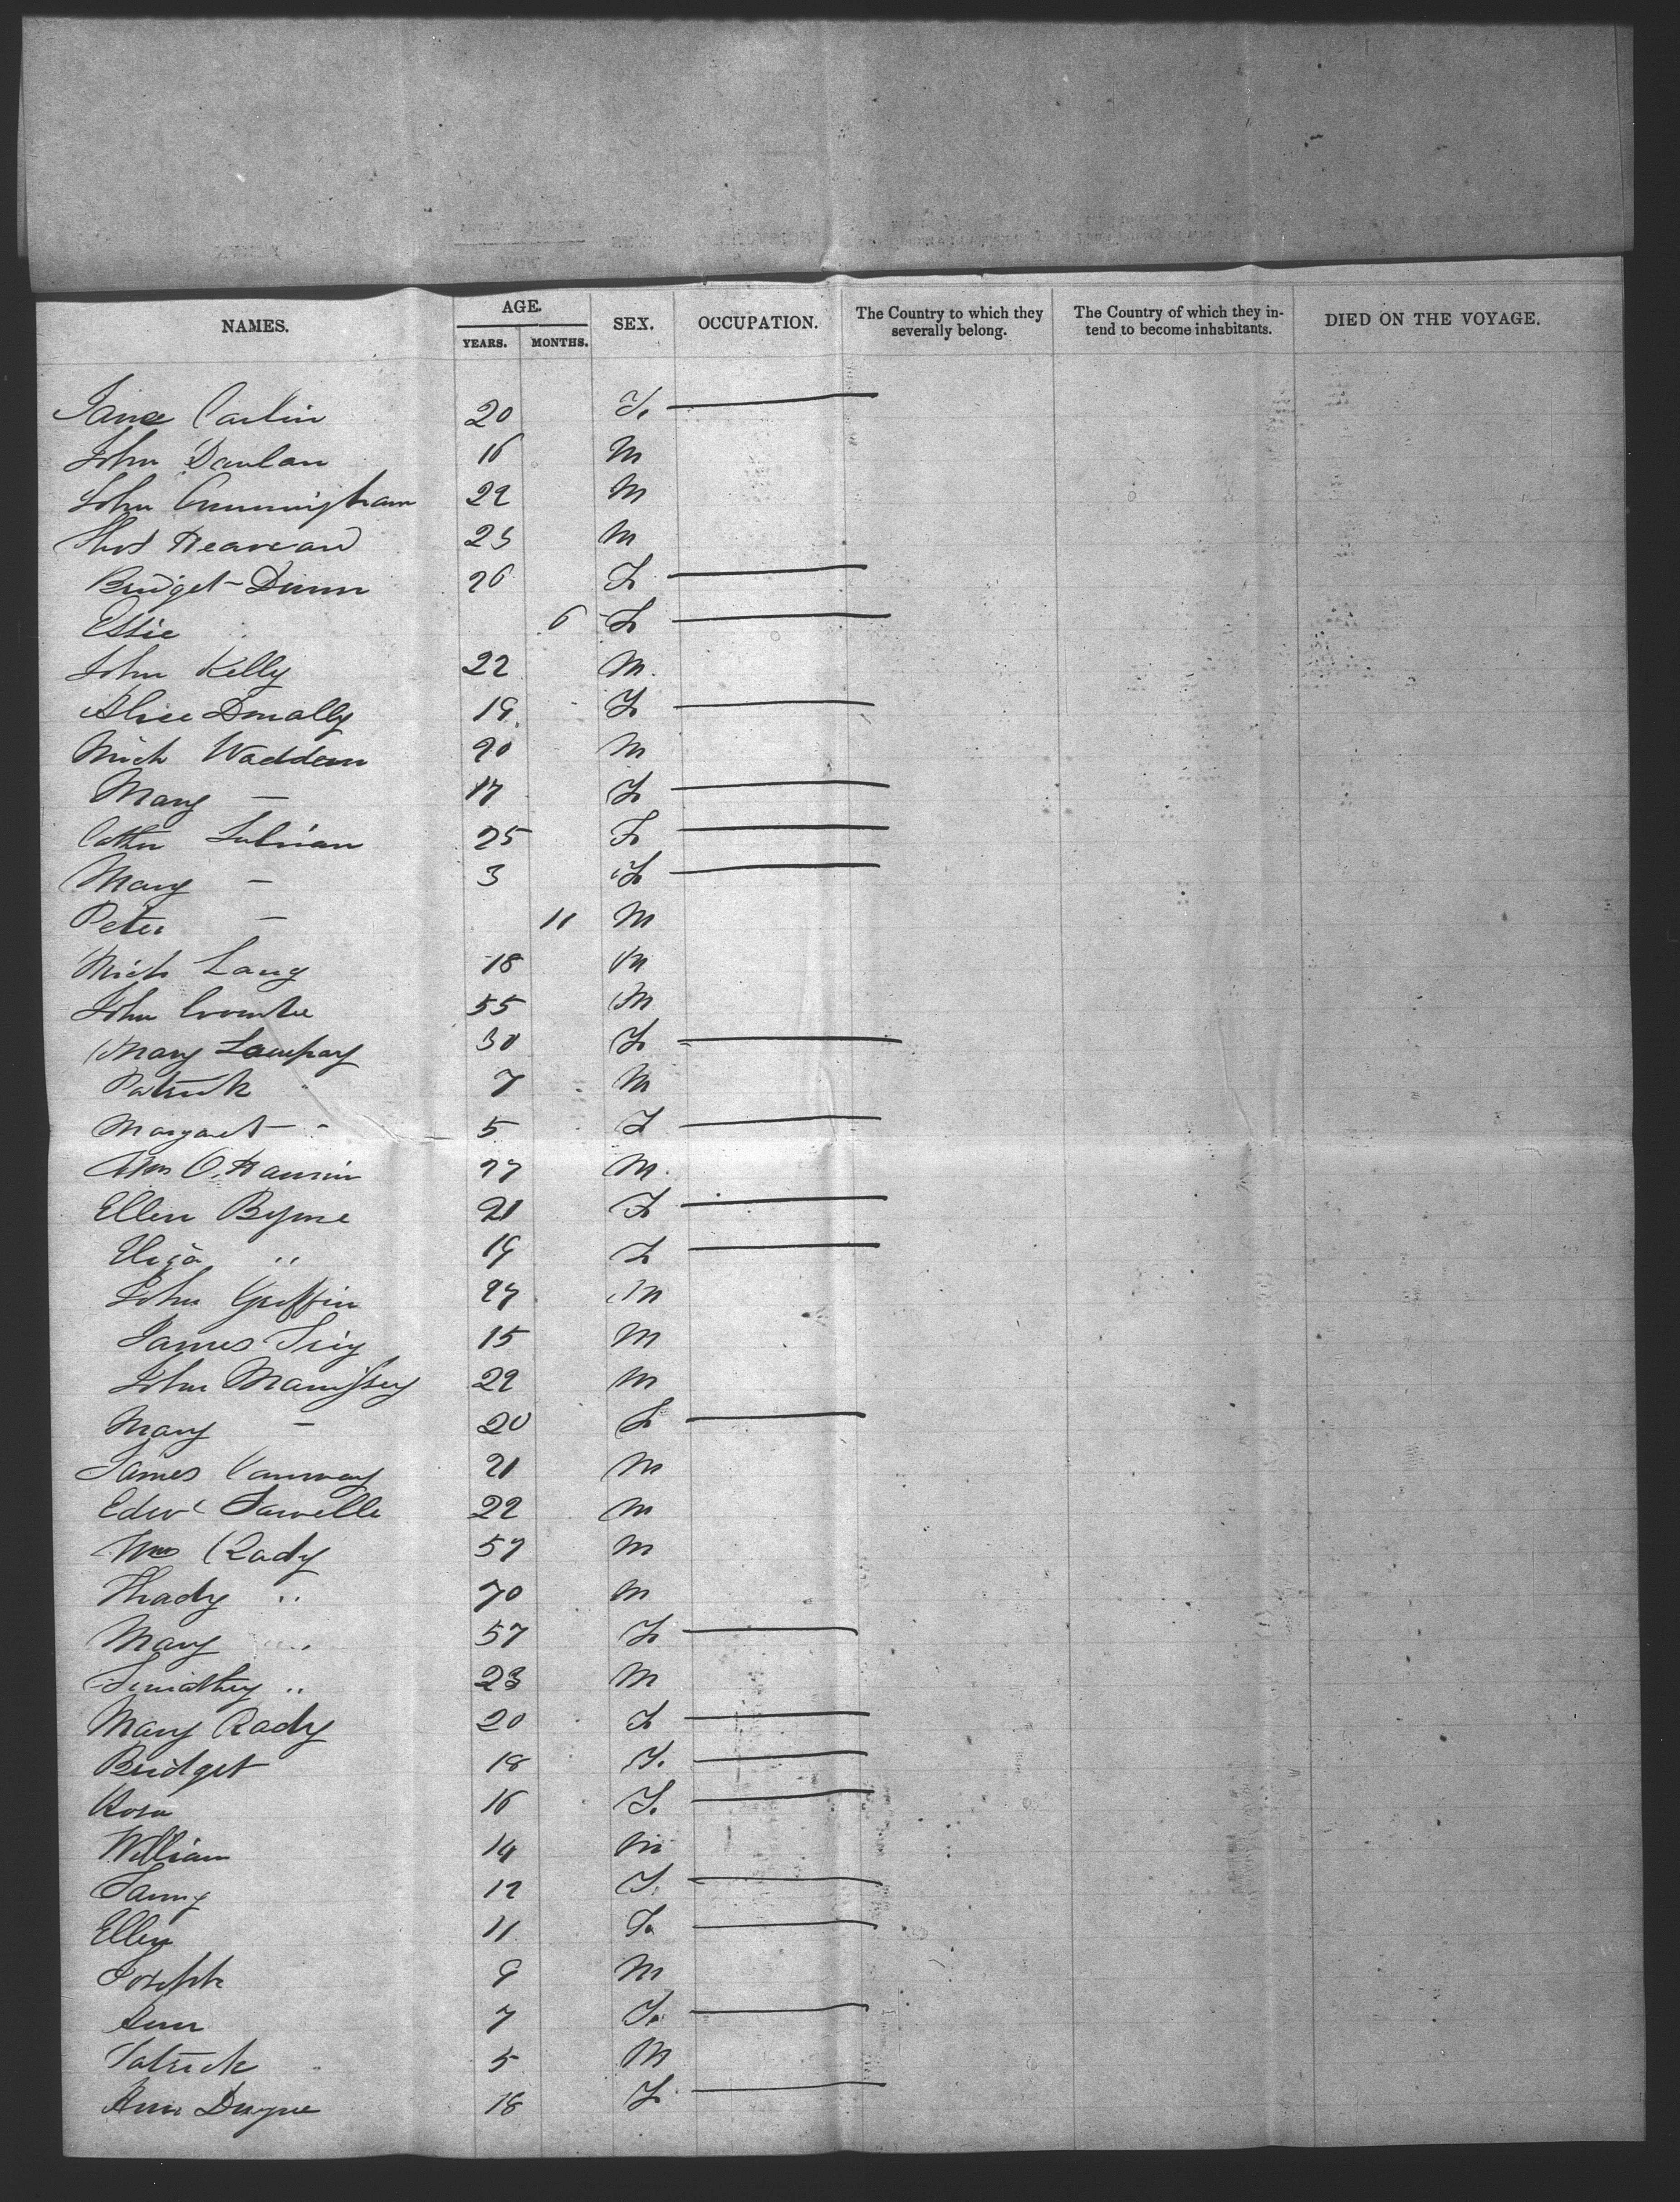 NAMES. AGE. SEX. OCCUPATION. The Country to which they severally belong. The Country of which they intend to become inhabitants. DIED ON THE VOYAGE.
YEARS. MONTHS.
Jane Carlin 20 F.
John Danlan 16 M
John Cunningham 22 M
Thos Heavean 23 M
Bridget Dunn 26 F
Essie 6 F
John Kelly 22 M.
Alice Donally 19 F
Mich Wadden 20 M
Mary — 17 F
Cathn 25 F
Mary — 3 F
Peter — 11 M
Mich Lang 18 M
John 55 M
Mary 30 F
Patrick " 7 M
Margaret " 5 F
Wm O. Hannin 27 M.
Ellen Byrne 21 F
Eliza " 19 F
John Griffin 27 M
James 15 M
John 22 M
Mary — 20 F
James Conway 21 M
Edwd 22 M
Wm Rady 57 M
Thady " 70 M
Mary " 57 F
Timothy " 23 M
Mary Rady 20 F
Bridget 18 F.
Rosa 16 F.
William 14 M
Fanny 12 F.
Ellen 11 F.
Joseph 9 M
Ann 7 F.
Patrick 5 M
Ann 18 F